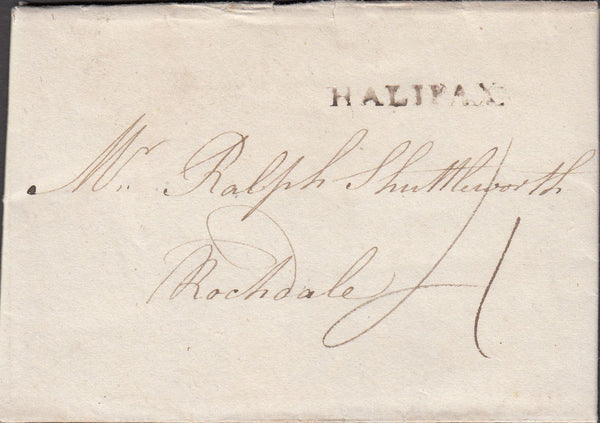 HALIFAX
Mr. Ralph Shuttleworth
Rochdale